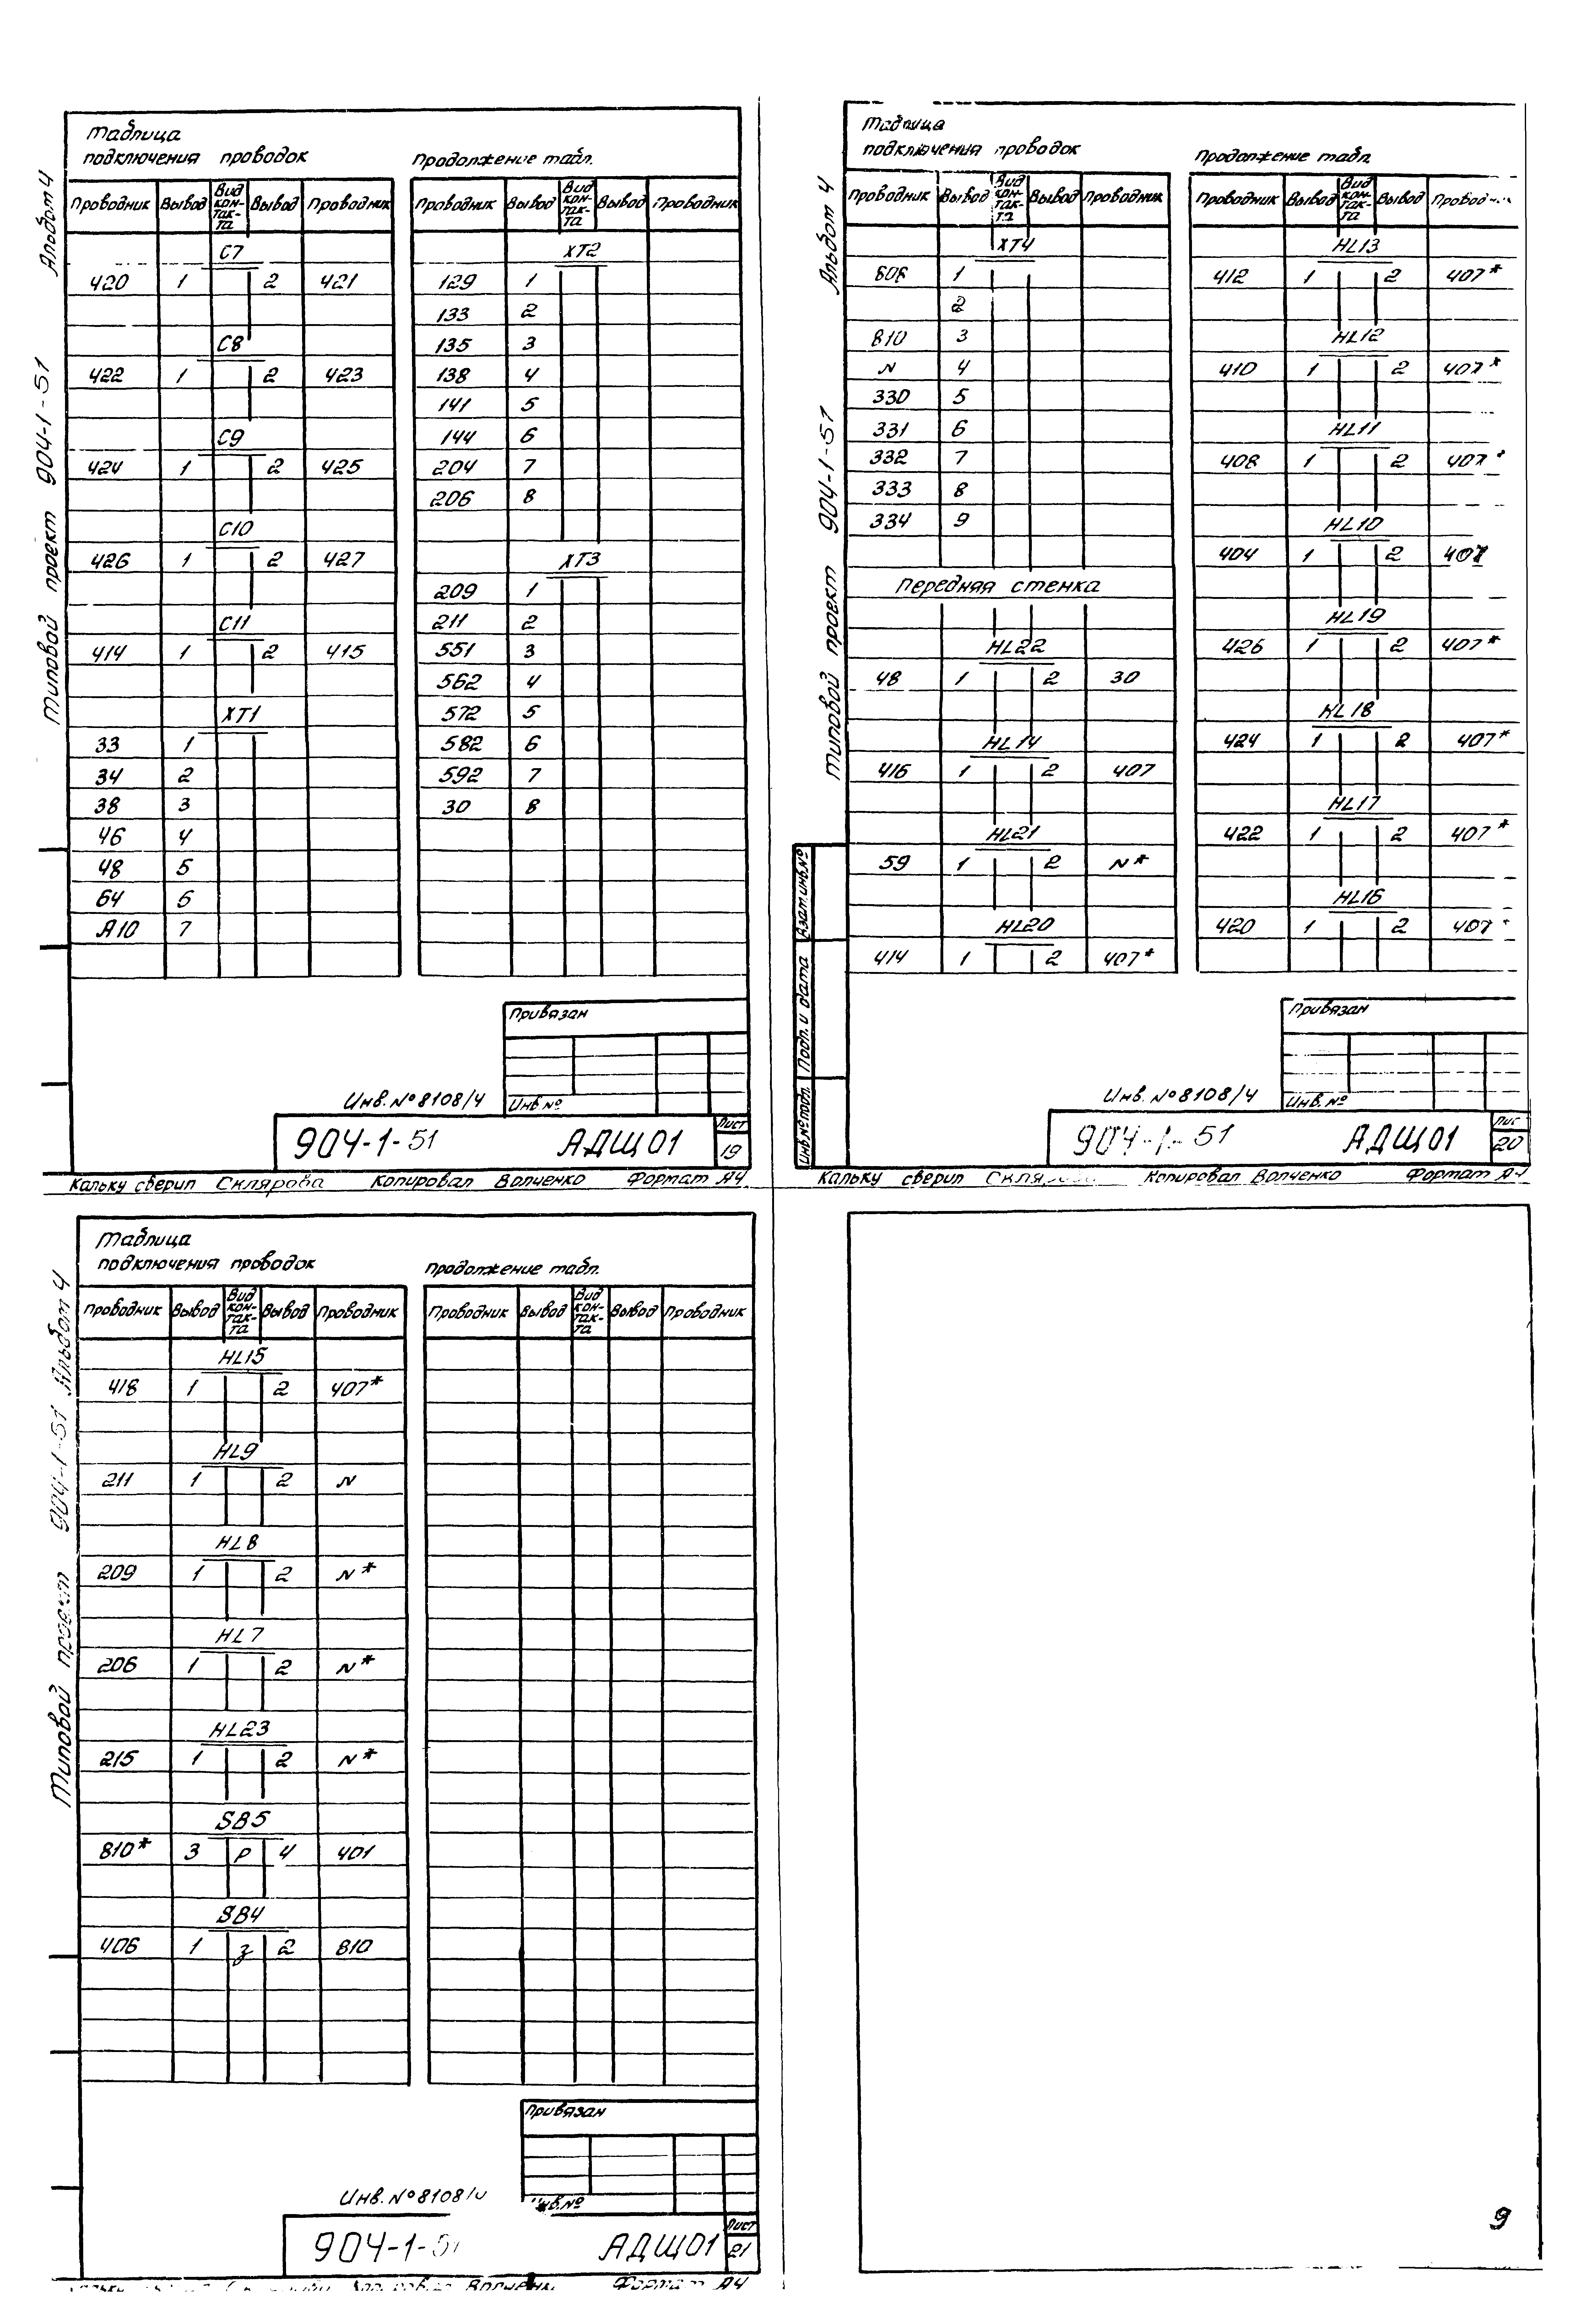 Таблица
подключения проводок
Проводник Вывод Вид контакта Вывод Проводник
С7
420 1 2 421
С8
422 1 2 423
С9
424 1 2 425
С10
426 1 2 427
С11
414 1 2 415
XT1
33 1
34 2
38 3
46 4
48 5
64 6
А10 7
Продолжение табл.
Проводник Вывод Вид контакта Вывод Проводник
XT2
129 1
133 2
135 3
138 4
141 5
144 6
204 7
206 8
XT3
209 1
211 2
551 3
562 4
572 5
582 6
592 7
30 8
Привязан
Инв.№
Инв.№8108/4
904-1-51 АДЩ01
Лист
19
Кальку сверил Склярова Копировал Волченко Формат А4
Типовой проект 904-1-51 Альбом 4
Таблица
подключения проводок
Проводник Вывод Вид контакта Вывод Проводник
XT4
808 1
2
810 3
N 4
330 5
331 6
332 7
333 8
334 9
Передняя стенка
HL22
48 1 2 30
HL14
416 1 2 407
HL21
59 1 2 N*
HL20
414 1 2 407*
Продолжение табл.
Проводник Вывод Вид контакта Вывод
HL13
412 1 2 407*
HL12
410 1 2 407*
HL11
408 1 2 407*
HL10
404 1 2 407
HL19
426 1 2 407*
HL18
424 1 2 407*
HL17
422 1 2 407*
HL16
420 1 2 407*
Привязан
Инв.№
Инв.№8108/4
904-1-51 АДЩ01
20
Кальку сверил Копировал Волченко Формат А4
Типовой проект 904-1-51 Альбом 4
Инв.№подл. Подп. и дата Взам.инв.№
Таблица
подключения проводок
Проводник Вывод Вид контакта Вывод Проводник
HL15
418 1 2 407*
HL9
211 1 2 N
HL8
209 1 2 N*
HL7
206 1 2 N*
HL23
215 1 2 N*
SB5
810* 3 р 4 401
SB4
406 1 з 2 810
Продолжение табл.
Проводник Вывод Вид контакта Вывод Проводник
Привязан
Инв.№8108/4
904-1-51 АДЩ01
Лист
21
Формат А4
Типовой проект 904-1-51 Альбом 4
9